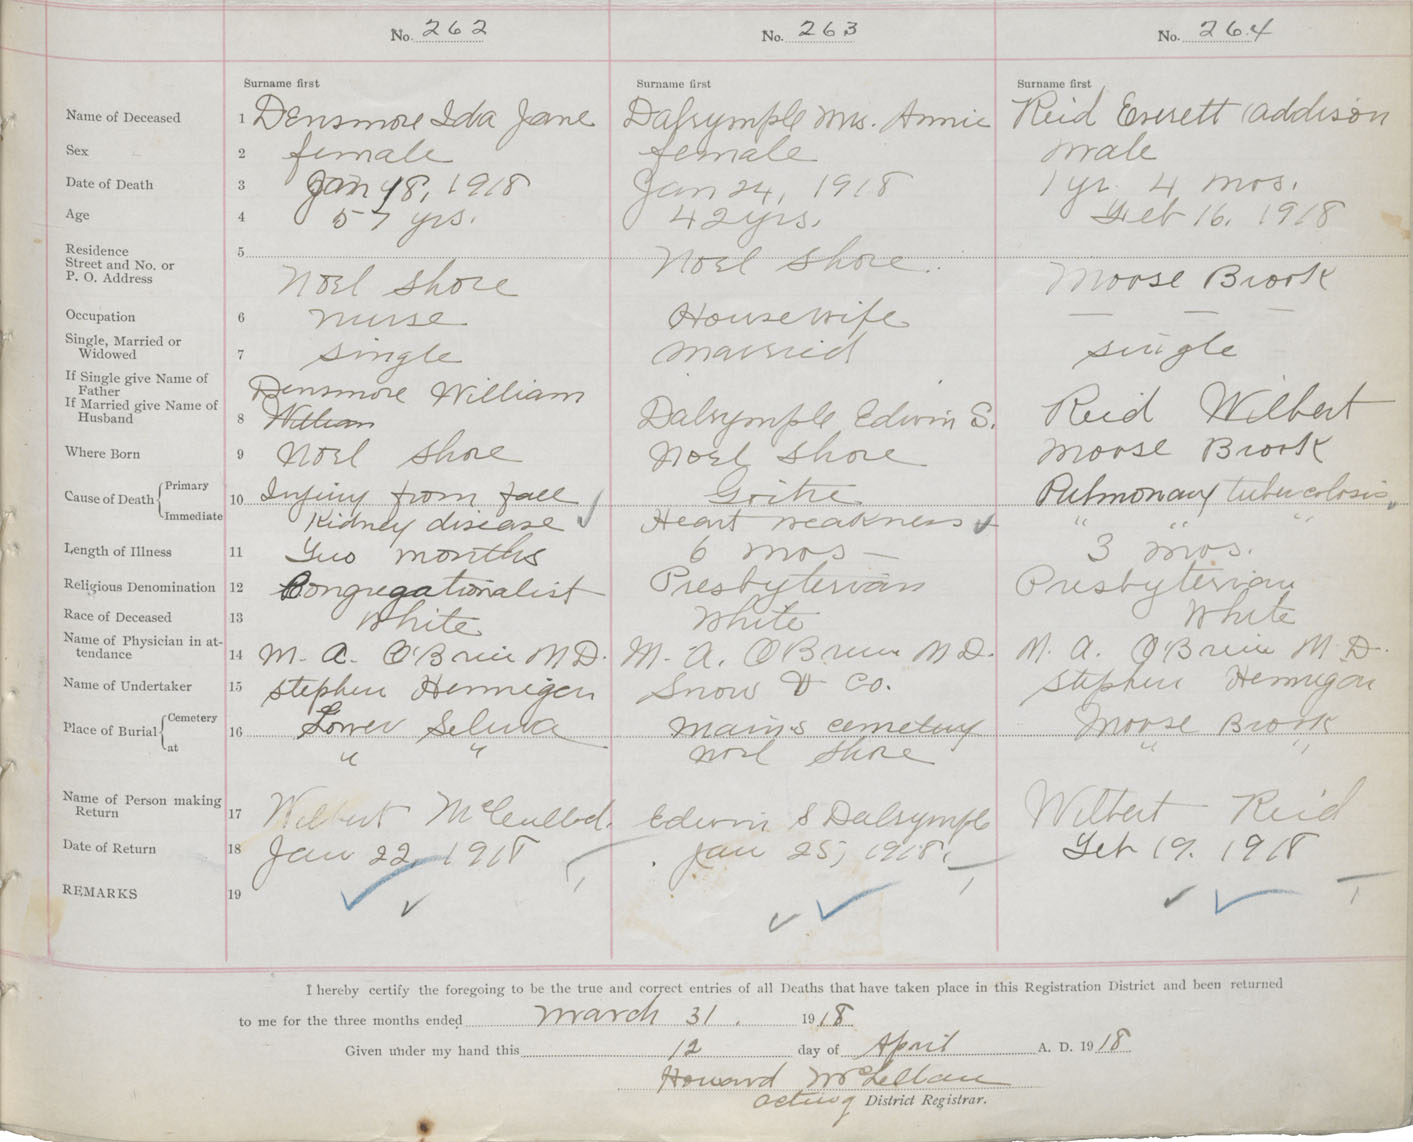 No. 262 No. 263 No. 264
Surname first Surname first Surname first
Name of Deceased 1 Densmore Ida Jane Dalrymple Mrs. Annie Reid Everett Addison
Sex 2 female female male
Date of Death 3 Jan 18, 1918 Jan 24, 1918 1 yr. 4 mos.
Age 4 57 yrs. 42 yrs. Feb 16. 1918
Residence
Street and No. or 5
P. O. Address Noel Shore Noel Shore. Moose Brook
Occupation 6 nurse Housewife — — —
Single, Married or
Widowed 7 single married single
If Single give Name of
Father Densmore William
If Married give Name of
Husband 8 William Dalrymple Edwin S. Reid Wilbert
Where Born 9 Noel Shore Noel Shore Moose Brook
Cause of Death Primary 10 Injury from fall Goitre Pulmonary tuberculosis
Immediate Kidney disease Heart weakness " " "
Length of Illness 11 Two months 6 mos — 3 mos.
Religious Denomination 12 Congregationalist Presbyterian Presbyterian
Race of Deceased 13 White White White
Name of Physician in at-
tendance 14 M. A. O'Brien M D. M. A. O'Brien M D. M. A. O'Brien M. D.
Name of Undertaker 15 Stephen Hennigar Snow & Co. Stephen Hennigar
Place of Burial Cemetery 16 Lower Selma Main's cemetery Moose Brook
at " " Noel Shore " "
Name of Person making
Return 17 Wilbert Edwin S Dalrymple Wilbert Reid
Date of Return 18 Jan 22, 1918 Jan 25, 1918. Feb 19. 1918
REMARKS 19
I hereby certify the foregoing to be the true and correct entries of all Deaths that have taken place in this Registration District and been returned
to me for the three months ended March 31. 1918
Given under my hand this 12 day of April A. D. 1918
Howard McLellan
acting District Registrar.